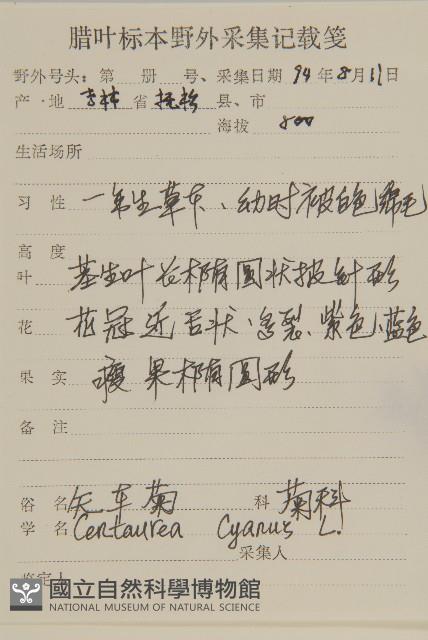 腊叶标本野外采集记载笺
野外号头：第 册 号、采集日期 94 年 8 月 11 日
产·地 吉林 省 抚松 县、市
海拔 800
生活场所
习 性 一年生草本、幼时被白色绵毛
高 度
叶 基生叶长椭圆状披针形
花 花冠近舌状、多裂、紫色、蓝色
果 实 瘦果椭圆形
备 注
俗 名 矢车菊 科 菊科
学 名 Centaurea Cyanus L.
采集人
鉴定人
國立自然科學博物館
NATIONAL MUSEUM OF NATURAL SCIENCE